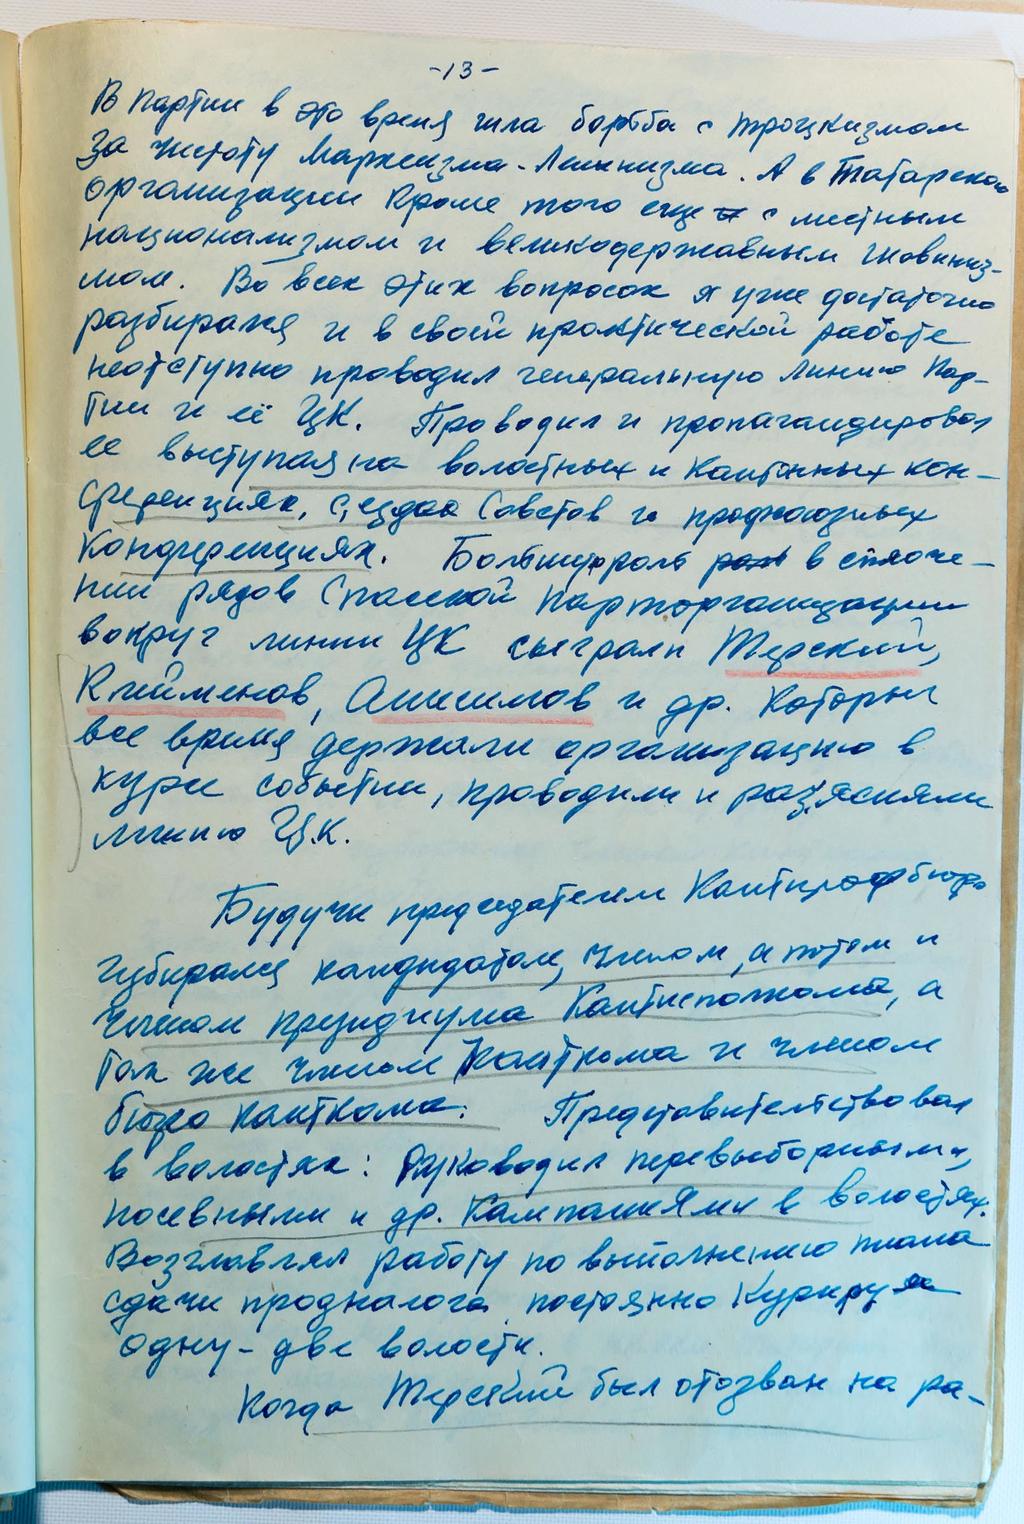 -13-
В партии в это время шла борьба с троцкизмом
За чистоту Марксизма-Ленинизма. А в Татарской
организации кроме того еще с местным
национализмом и великодержавным шовиниз-
мом. Во всех этих вопросах я уже достаточно
разбирался и в своей практической работе
неотступно проводил генеральную линию Пар-
тии и её ЦК. Проводил и пропагандировал
ее выступая на волостных и кантонных кон-
ференциях, с,ездах Советов и профсоюзных
конференциях. Большую роль в сплоче-
нии рядов Спасской парторганизации
вокруг линии ЦК сыграли Терский,
Клименов, Анисимов и др. которые
все время держали организацию в
курсе событии, проводили и раз,ясняли
линию Ц.К.
Будучи председателем Кантпрофбюро
избирался кандидатом, членом, а потом и
членом президиума Кантисполкома, а
так же членом Канткома и членом
бюро канткома. Представительствовал
в волостях: Руководил перевыборными,
посевными и др. Кампаниями в волостях.
Возглавлял работу по выполнению плана
сдачи продналога постоянно Курируя
одну-две волости.
Когда Терский был отозван на ра-